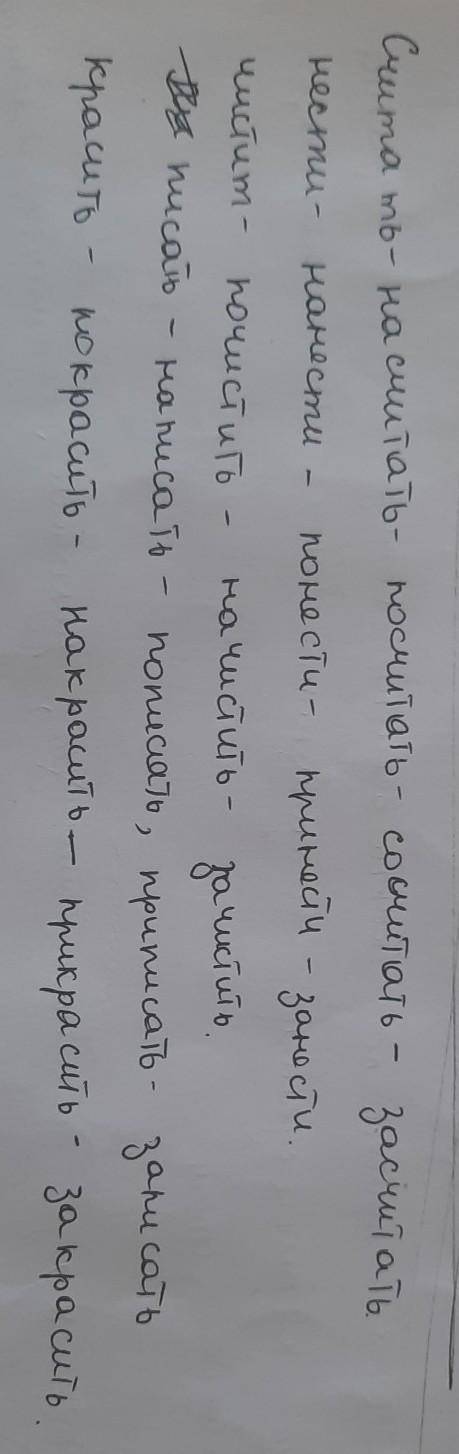 Считать - насчитать - посчитать - сосчитать - засчитать.
нести - нанести - понести - принести - занести.
чистит - почистить - начистить - зачистить.
писать - написать - пописать, приписать - записать
красить - покрасить - накрасить - прикрасить - закрасить.